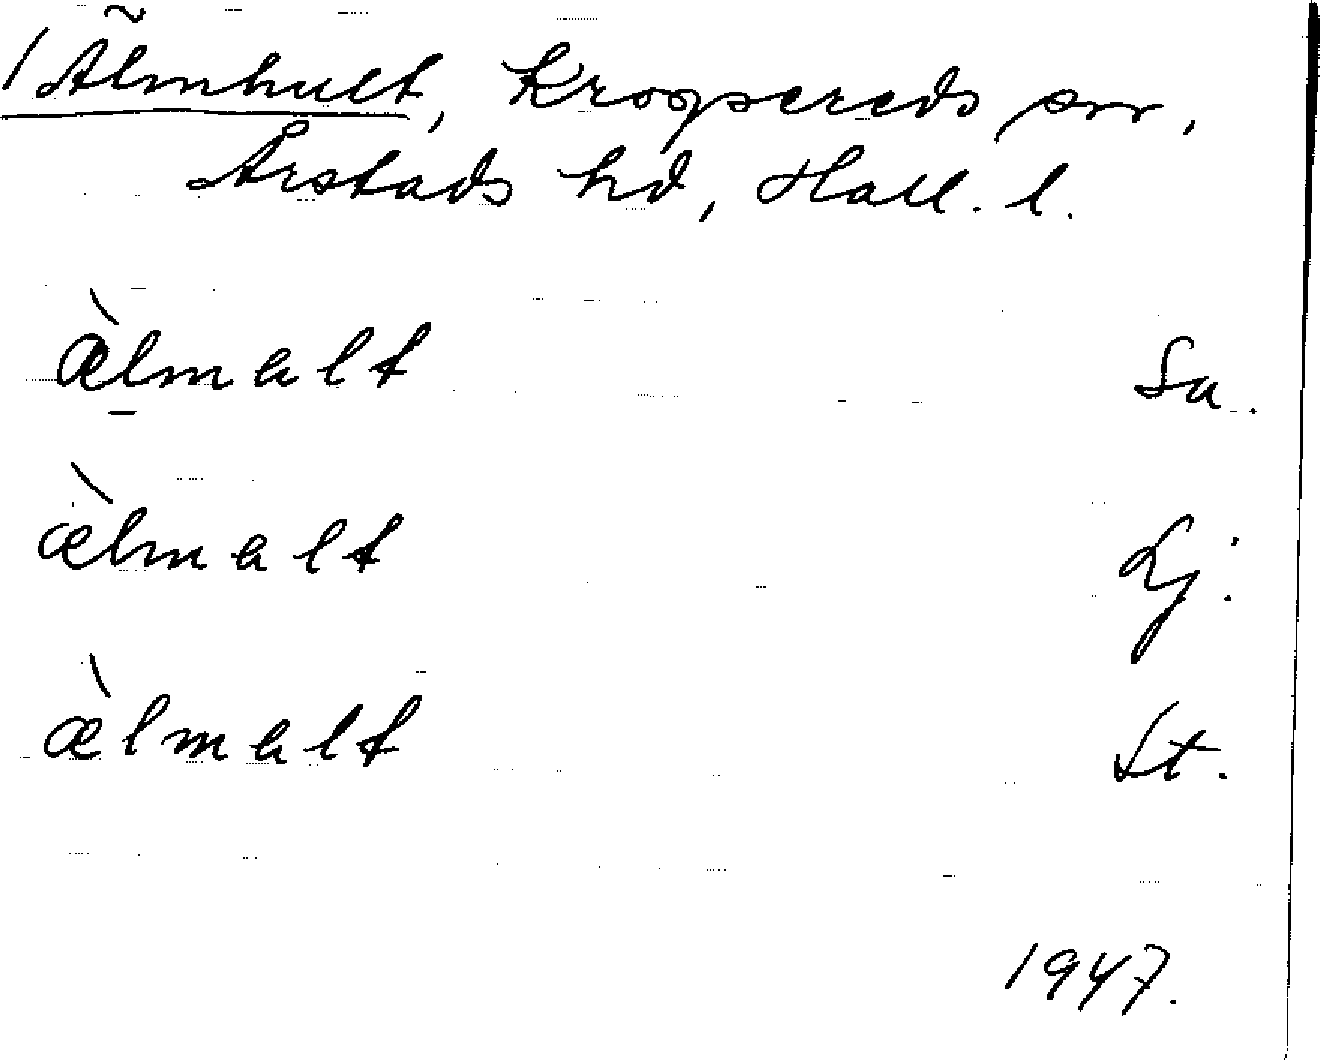 / Älmhult, Krogsereds sn,
Årstads hd, Hall. l.
æ̀lmalt Sa.
æ̀lmalt Lj.
æ̀lmalt St.
1947.